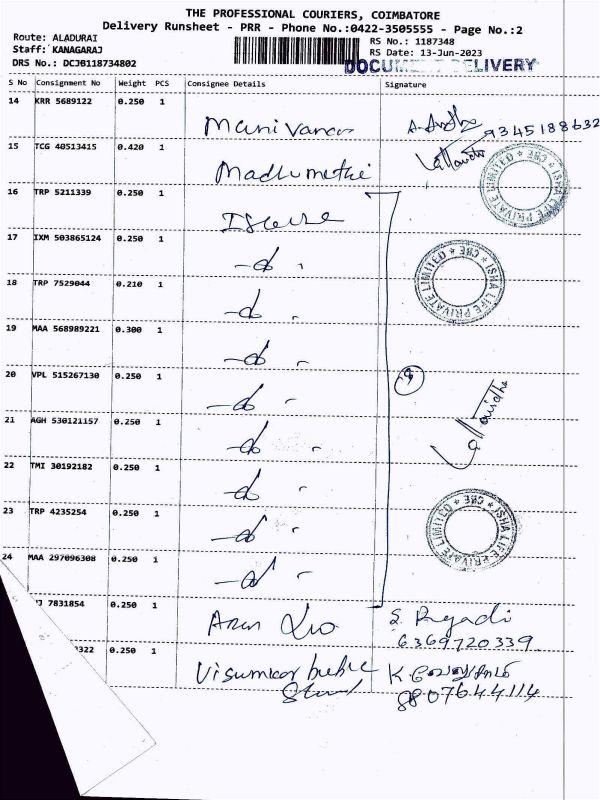 THE PROFESSIONAL COURIERS, COIMBATORE
Delivery Runsheet - PRR - Phone No.:0422-3505555 - Page No.:2
Route: ALADURAI
RS No.: 1187348
Staff: KANAGARAJ
RS Date: 13-Jun-2023
DRS No.: DCJB118734802
DOCUMENT DELIVERY
S No Consignment No Weight PCS Consignee Details Signature
14 KRR 5689122 0.250 1 Manivanan 9345188632
15 TCG 40513415 0.420 1 Madhumethi
16 TRP 5211339 0.250 1
17 IXM 503865124 0.250 1 -do "
18 TRP 7529044 0.210 1 -do "
19 MAA 568989221 0.300 1 -do "
20 VPL 515267130 0.250 1 -do "
21 AGH 530121157 0.250 1 -do "
22 TMI 30192182 0.250 1 -do "
23 TRP 4235254 0.250 1 -do "
24 MAA 297096308 0.250 1 -do "
9
ISHA LIFE PRIVATE LIMITED * CBE *
ISHA LIFE PRIVATE LIMITED * CBE *
ISHA LIFE PRIVATE LIMITED * CBE *
7831854 0.250 1 Arun S.
6369720339
322 0.250 1 K.
8807644114